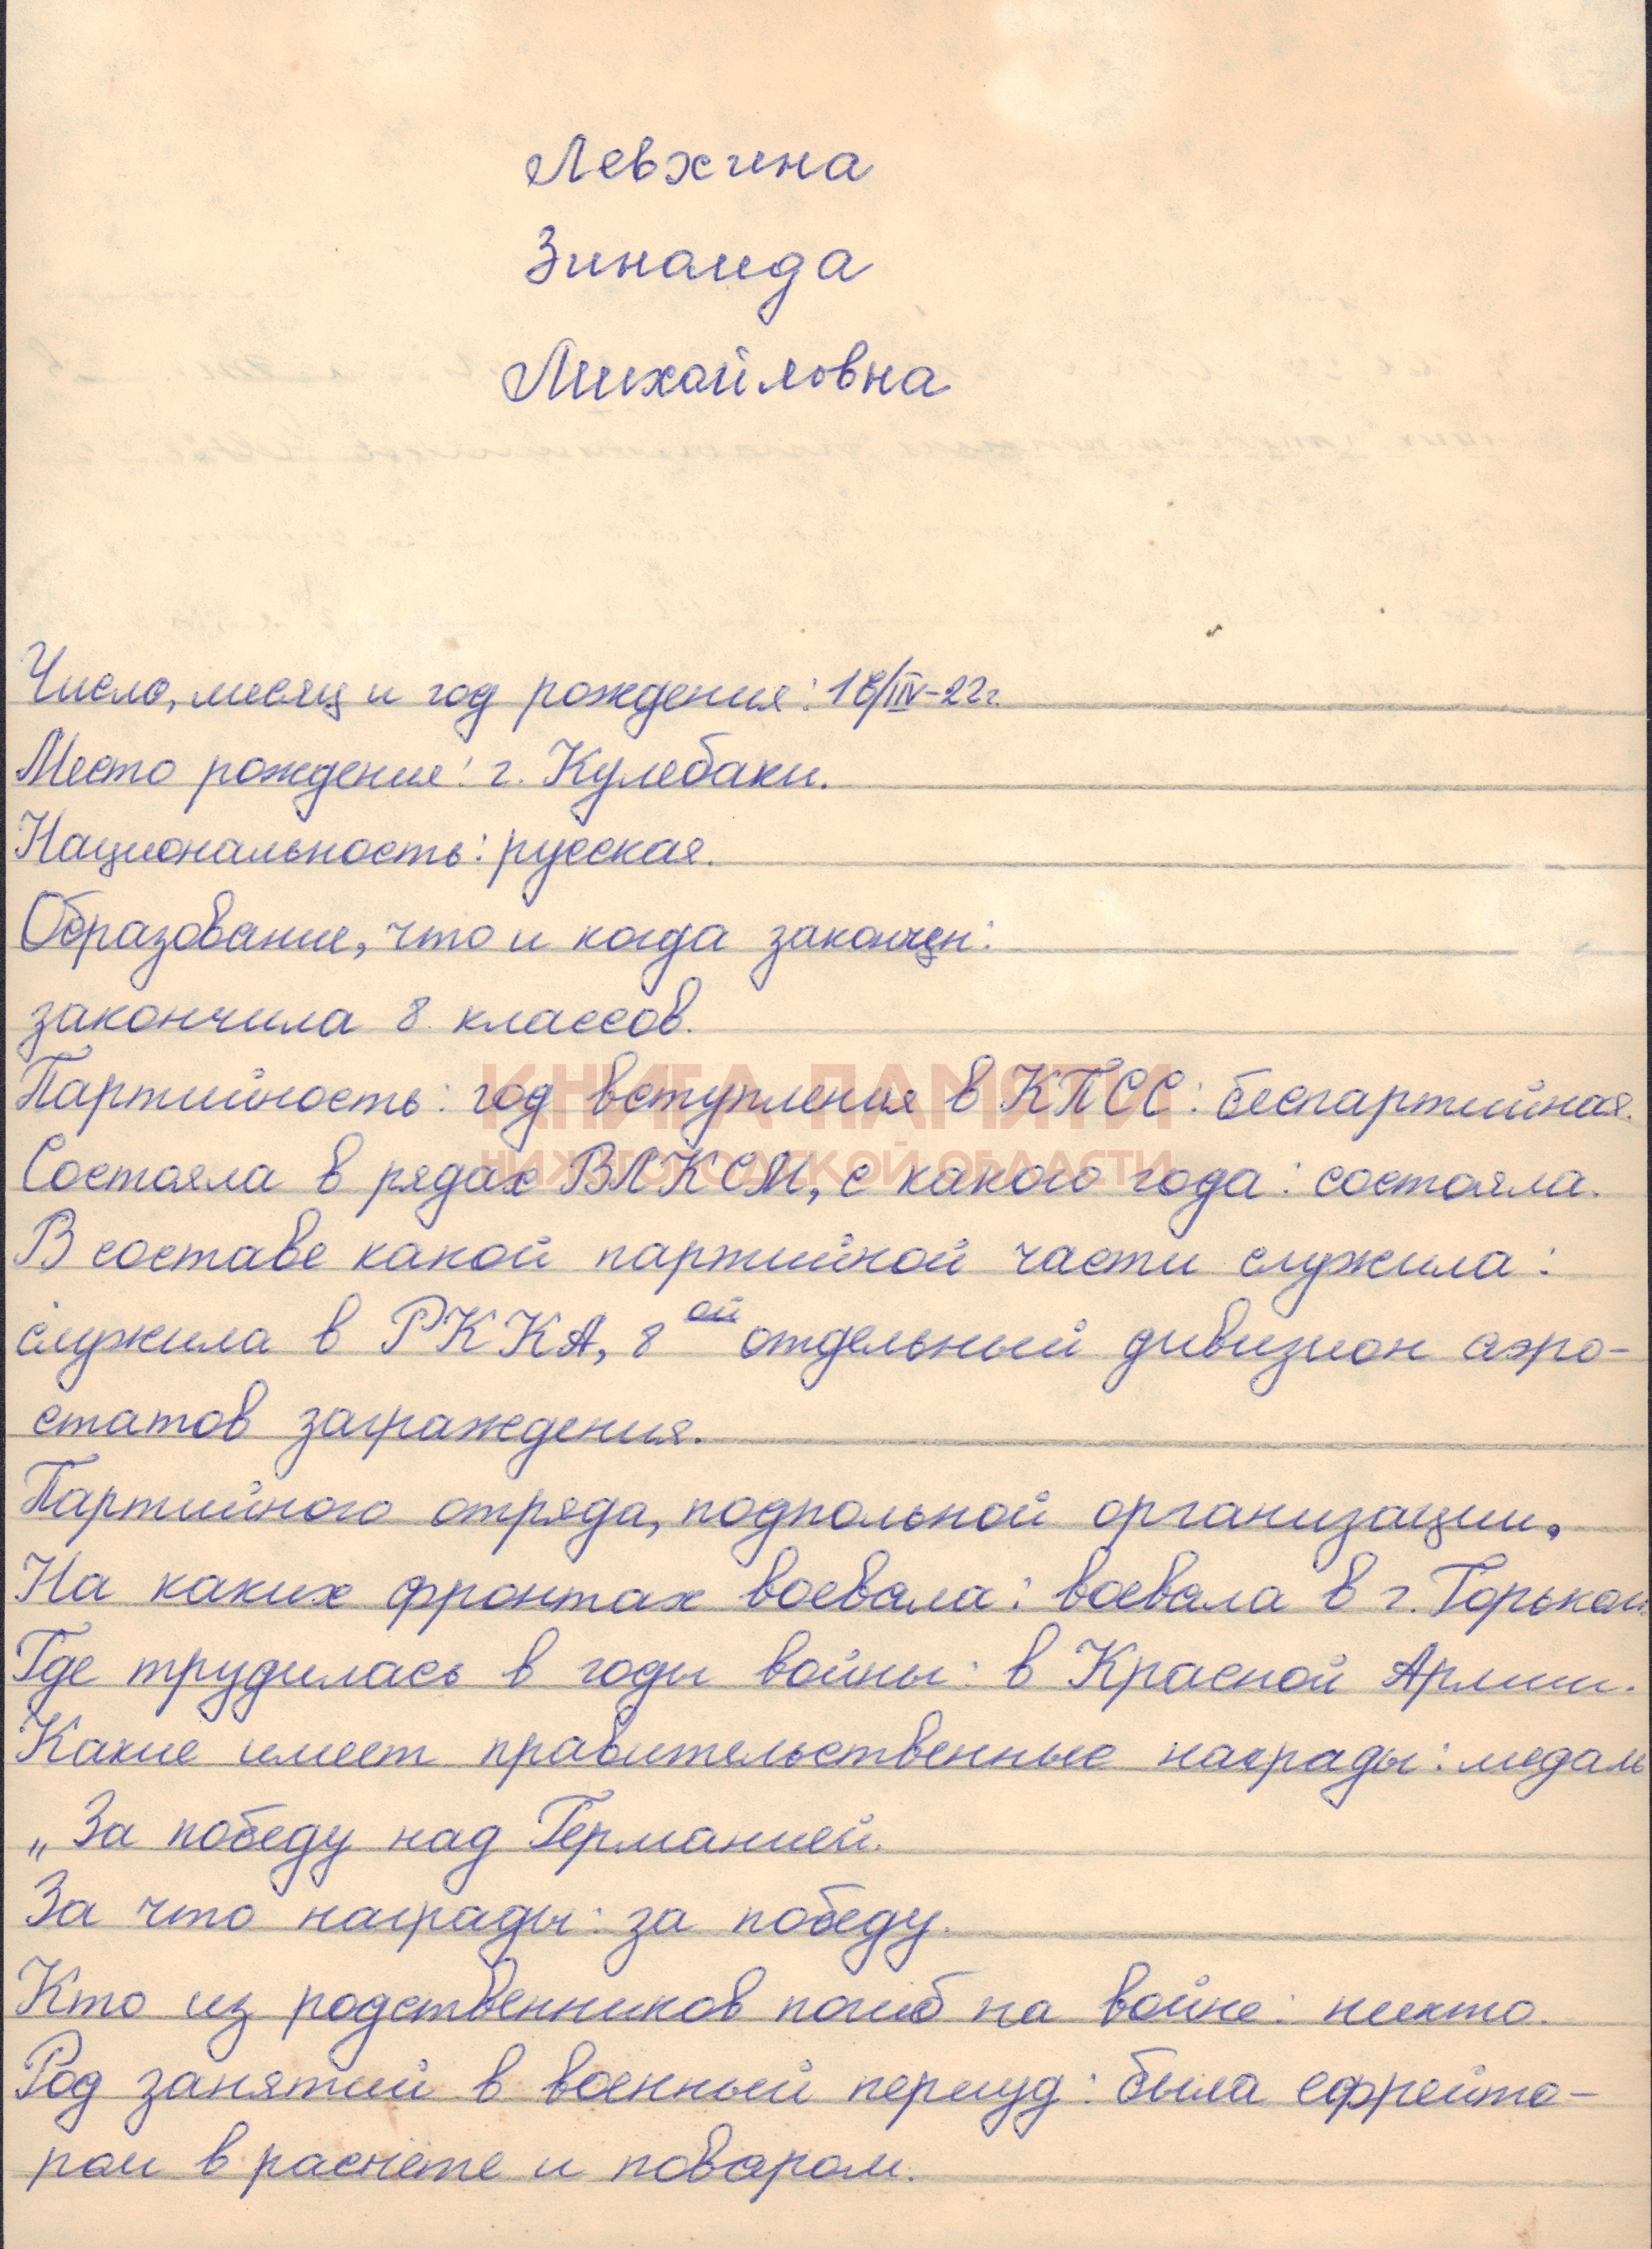 Левхина
Зинаида
Михайловна
Число, месяц и год рождения: 18/IV-22г.
Место рождения: г. Кулебаки.
Национальность: русская.
Образование, что и когда закончен:
закончила 8 классов.
КНИГА ПАМЯТИ
Партийность: год вступления в КПСС: беспартийная.
НИЖЕГОРОДСКОЙ ОБЛАСТИ
Состояла в рядах ВЛКСМ, с какого года: состояла.
В составе какой партийной части служила:
служила в РККА, 8ой отдельный дивизион аэро-
статов заграждения.
Партийного отряда, подпольной организации.
На каких фронтах воевала: воевала в г. Горьком
Где трудилась в годы войны: в Красной Армии.
Какие имеет правительственные награды: медаль
„За победу над Германией.
За что награды: за победу.
Кто из родственников погиб на войне: никто.
Род занятий в военный периуд: была ефрейто-
ром в расчете и поваром.